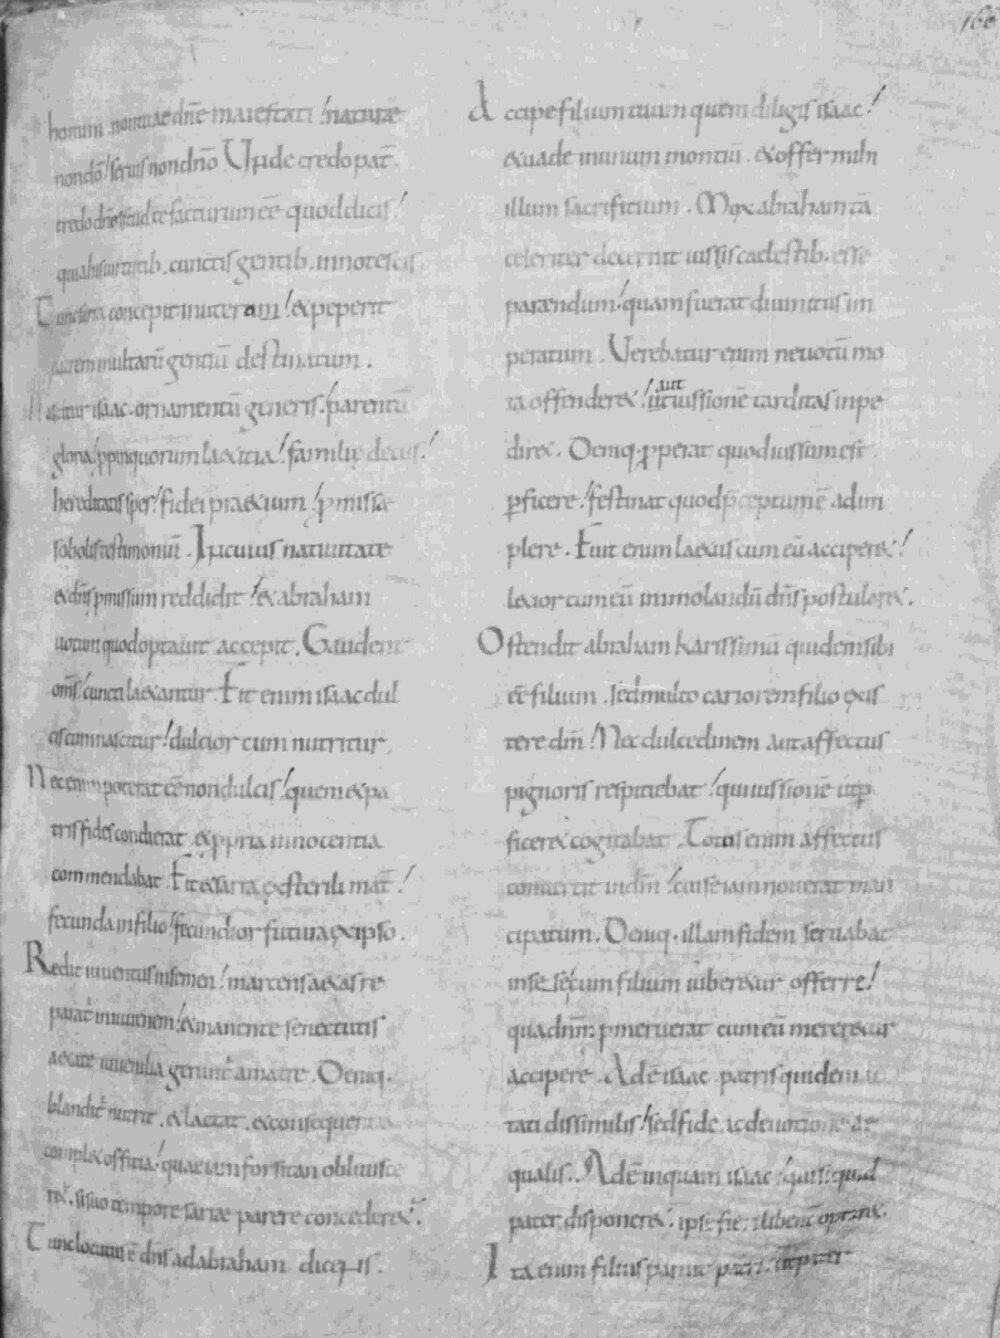 166
honum. non tuae dñe maiestati! naturae
nondõ! seruis non dño Vnde credo pat̄.
credo dñe sicud te facturum eē quod dicis!
qualis uirtutib. cunctis gentib. innotescis.
Tunc sarra concepit in uterum! & peperit
patrem multarũ gentiũ destinatum.
Nascitur isaac. ornamentũ generis. parentũ
gloria! ppinquorum laetitia! familię decus!
hereditatis spes! fidei praemium! pmissae
sobolis testimoniũ. In cuius natiuitate
& dñs pmissum reddidit! & abraham
uotum quod optauit accepit. Gaudent
om̄s! cuncti laetantur. Fit enim isaac dul
cis cum nascitur! dulcior cum nutritur.
Nec enim poterat eē non dulcis! quem & pa
tris fides condierat & ppria innocentia
commendabat. Fit & sarra ex sterili mat̄!
fecunda in filio! fecundior futura ex ipso.
Redit iuuentus in semen! marcens aetas re
parat̄ in iuuenem! & manente senectutis
aetate iuuenilia gerunt̄ a matre. Deniq.
blandit̄ nutrit. & lactat. & consequenter
complet officia! quae iam forsitan obliuisce
ret̄. si suo tempore sarrae parere concederet̄.
Tunc locutus ē dñs ad abraham dicens.
Accipe filium tuum quem diligis isaac!
& uade in unum montiũ. & offer mihi
illum sacrificium. Mox abraham tã
celeriter decernit iussis caelestib. esse
parendum! quam fuerat diuinitus im
peratum. Verebatur enim ne uotũ mo
ra offenderet! aut iussionē tarditas inpe
diret. Deniq. pperat quod iussum est
pficere! festinat quod p̄ceptum ē adim
plere. Fuit enim laetus cum eũ acciperet!
laetior cum eũ immolandũ dñs postularet.
Ostendit abraham karissimũ quidem sibi
eē filium. sed multo cariorem filio exis
tere dm̄! Nec dulcedinem aut affectus
pignoris respiciebat! qui iussionē ut p
ficeret cogitabat. Totus enim affectus
conuertit in dm̄! cui se iam nouerat man
cipatum. Deniq. illam fidem seruabat
in se secum filium iuberetur offerre!
qua dñm pmeruerat cum eũ meretur
accipere. Adē isaac patris quidem ae
tati dissimilis! sed fide ac deuotione ae
qualis. Adē inquam isaac! quisquid
pater disponeret. ipse fieri libent̄ optaret.
Ita enim filius paruit patri.